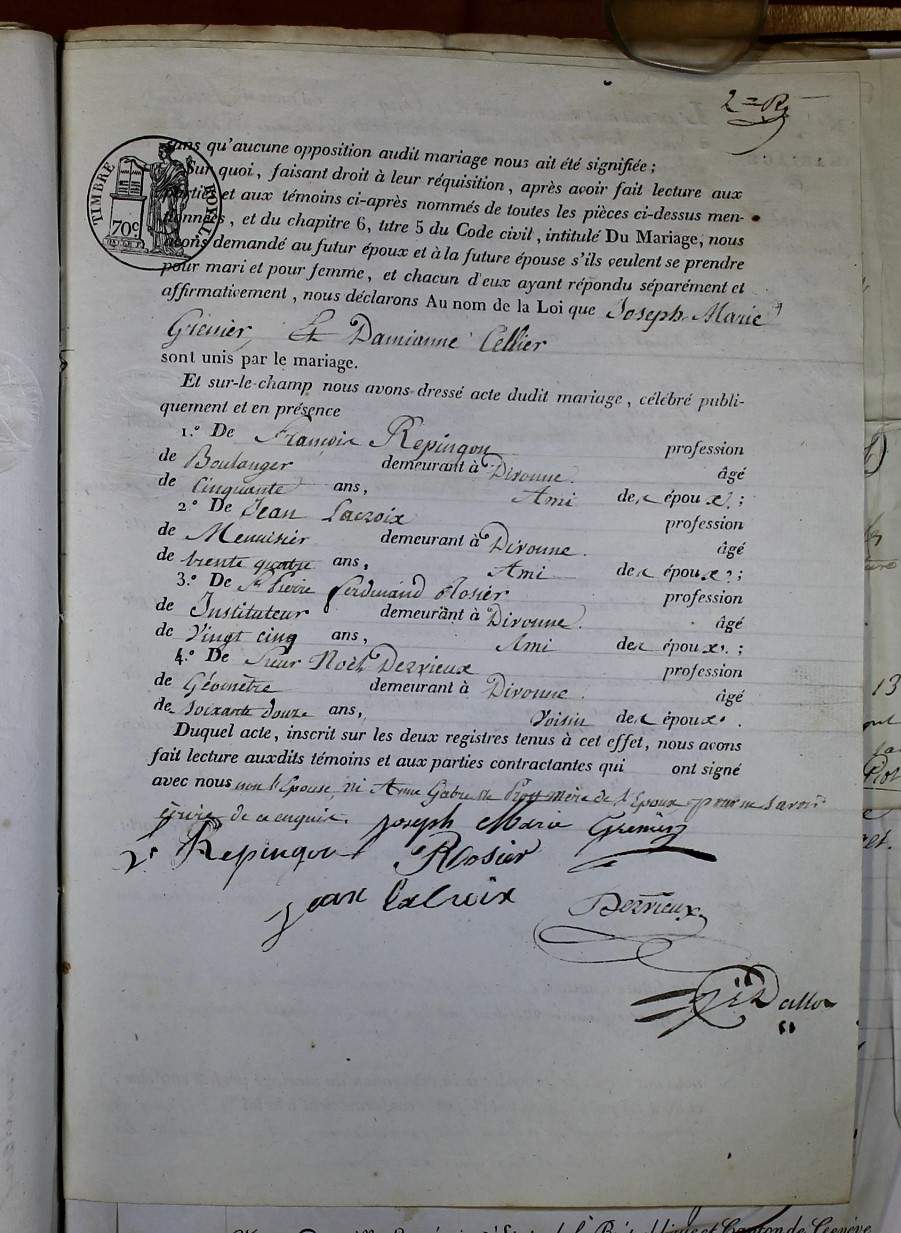 2=
TIMBRE ROYAL
70c
sans qu'aucune opposition audit mariage nous ait été signifiée ;
Sur quoi, faisant droit à leur réquisition, après avoir fait lecture aux
parties et aux témoins ci-après nommés de toutes les pièces ci-dessus men-
données, et du chapitre 6, titre 5 du Code civil, intitulé Du Mariage, nous
avons demandé au futur époux et à la future épouse s'ils veulent se prendre
pour mari et pour femme, et chacun d'eux ayant répondu séparément et
affirmativement, nous déclarons Au nom de la Loi que Joseph Marie
Grenier, Et Damianne Cellier
sont unis par le mariage.
Et sur-le-champ nous avons dressé acte dudit mariage, célébré publi-
quement et en présence
1.° De François Repingon profession
de Boulanger demeurant à Divonne. âgé
de Cinquante ans, Ami des époux ;
2.° De Jean Lacroix profession
de Menuisier demeurant à Divonne. âgé
de trente quatre ans, Ami des époux ;
3.° De Sr Pierre Ferdinand Rosier profession
de Instituteur demeurant à Divonne. âgé
de Vingt cinq ans, Ami des époux ;
4.° De Sieur Noël Dezrieux profession
de Géomètre demeurant à Divonne. âgé
de Soixante douze ans, Voisin des époux.
Duquel acte, inscrit sur les deux registres tenus à cet effet, nous avons
fait lecture auxdits témoins et aux parties contractantes qui ont signé
avec nous non l'Epouse, ni Anne mère de l'Epoux pour ne savoir
écrire de ce enquis.
Joseph Marie Grenier
Repingon Rosier
jean laCroix Dezrieux